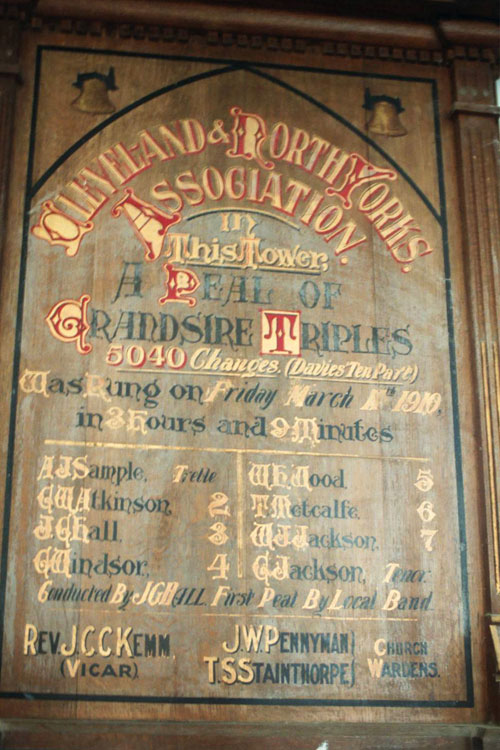 CLEVELAND & NORTH YORKS.
ASSOCIATION.
in
This Tower,
A PEAL OF
GRANDSIRE TRIPLES
5040 Changes. (Davies Ten Part)
Was Rung on Friday March 1910,
in 3 Hours and 9 Minutes
A J Sample, Treble
G W Atkinson, 2
J G Hall. 3
G Windsor, 4
W H Wood. 5
T Metcalfe. 6
W J Jackson, 7
G Jackson, Tenor.
Conducted By J G HALL. First Peal By Local Band.
REV. J.C.C KEMM,
(VICAR)
J.W.PENNYMAN)
T.S STAINTHORPE)
CHURCH
WARDENS.